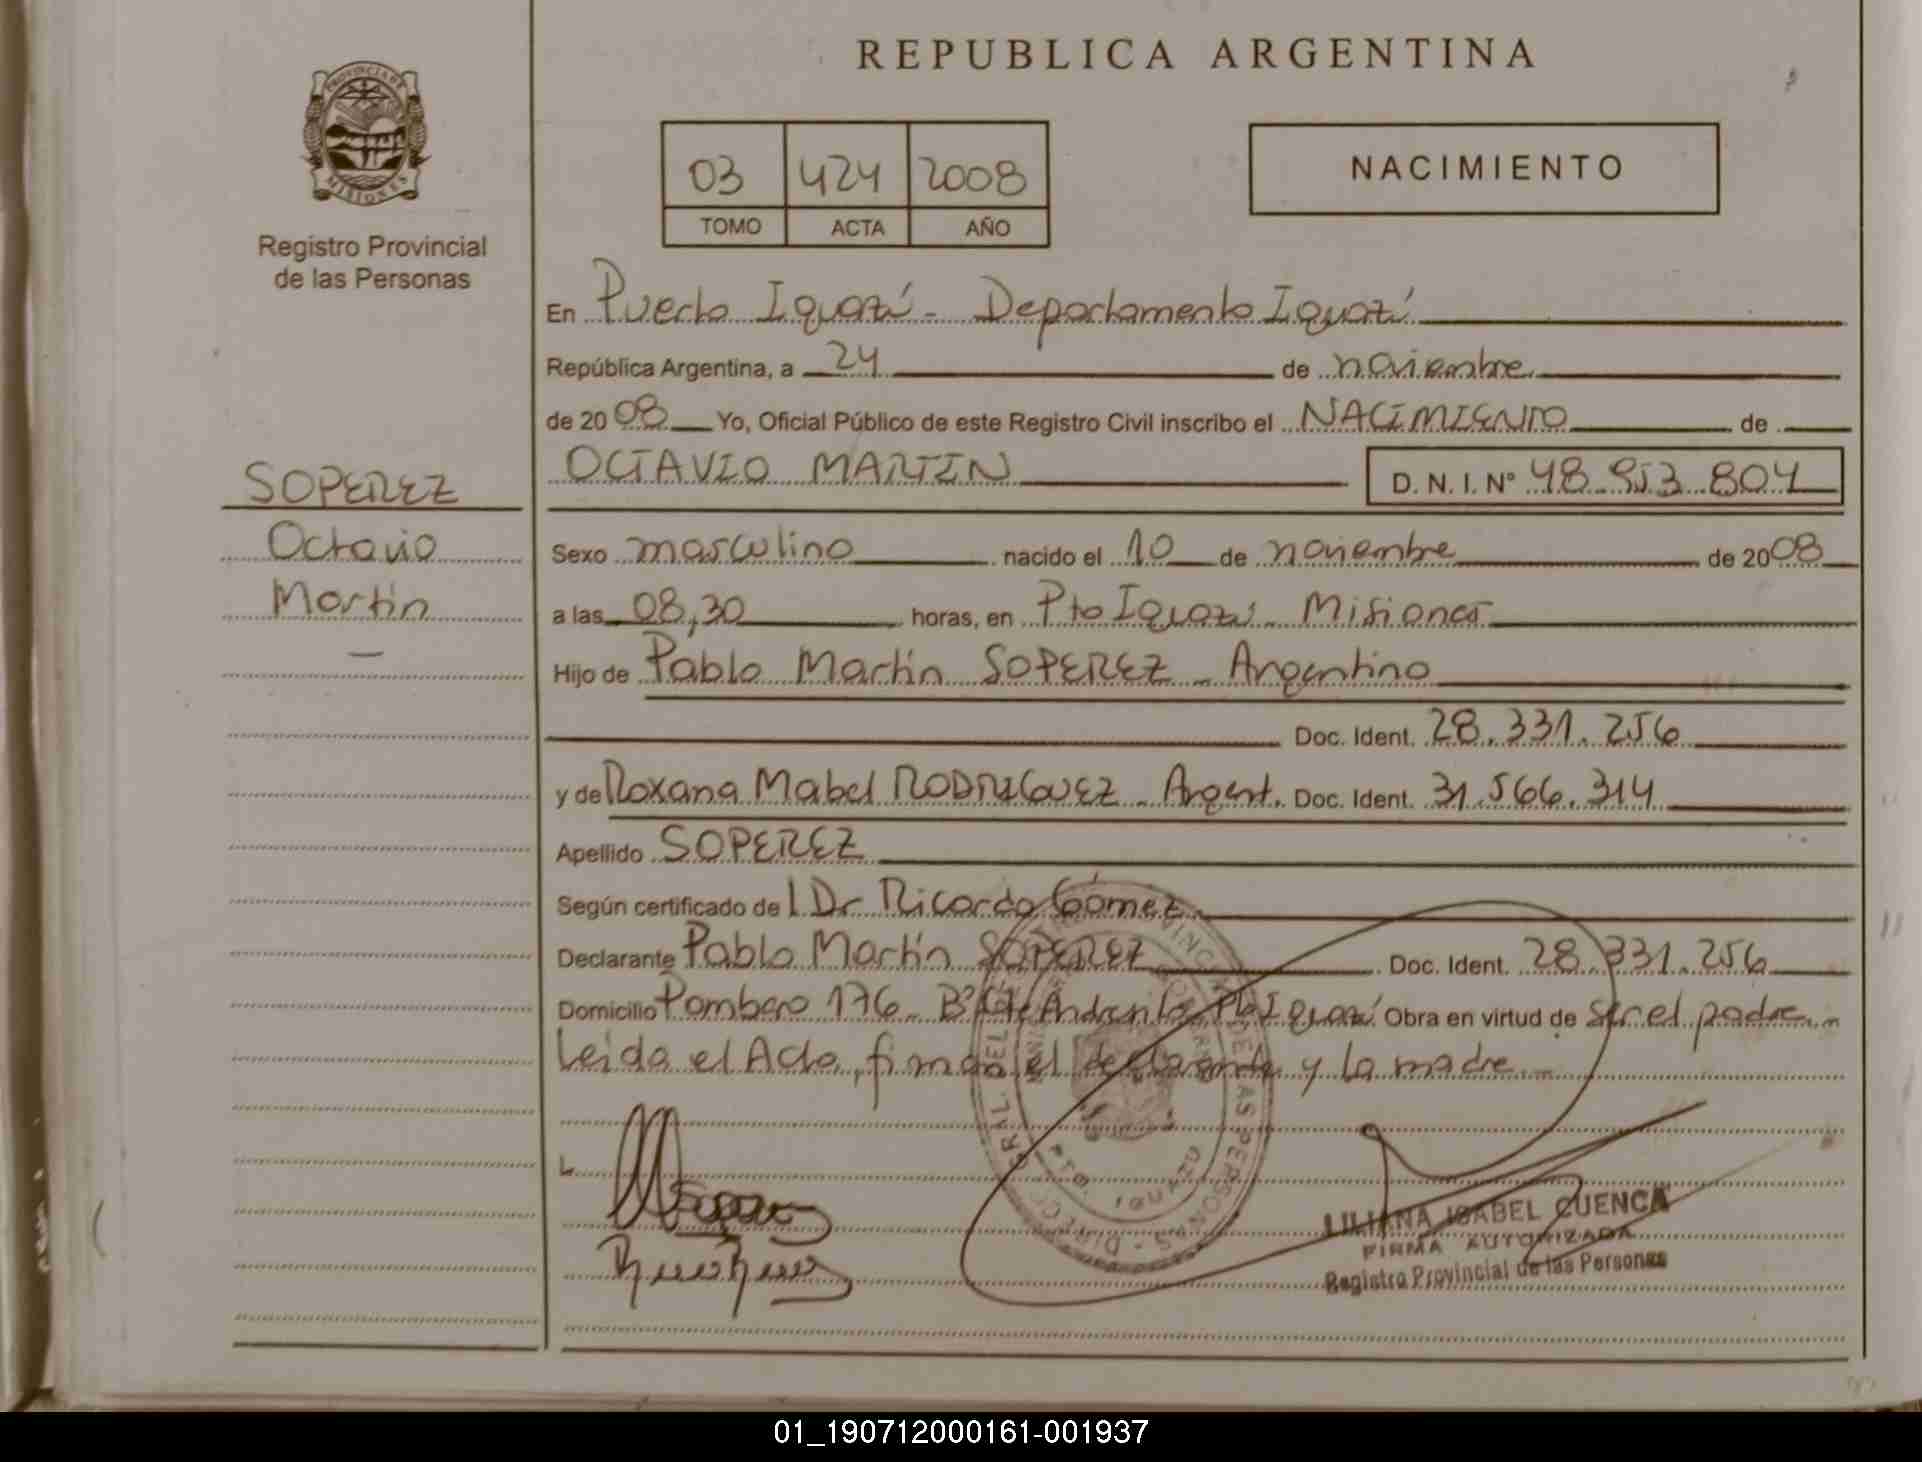 REPUBLICA ARGENTINA
PROVINCIA DE
MISIONES
Registro Provincial
de las Personas
03 424 2008
TOMO ACTA AÑO
NACIMIENTO
En Puerto Iguazú - Departamento Iguazú
República Argentina, a 24 de noviembre
de 2008 Yo, Oficial Público de este Registro Civil inscribo el NACIMIENTO de
OCTAVIO MARTIN D. N. I. N° 48.953.804
SOPEREZ
Octavio
Martín
Sexo masculino nacido el 10 de noviembre de 2008
a las 08,30 horas, en Pto Iguazú - Misiones
Hijo de Pablo Martín SOPEREZ - Argentino
Doc. Ident. 28.331.256
y de Roxana Mabel RODRIGUEZ - Argent. Doc. Ident. 31.566.314
Apellido SOPEREZ
Según certificado de l Dr Ricardo Gómez
Declarante Pablo Martín SOPEREZ Doc. Ident. 28.331.256
Domicilio Pombero 176 - Pto Iguazú Obra en virtud de ser el padre
Leida el Acta, firman el declarante y la madre
LILIANA ISABEL CUENCA
FIRMA AUTORIZADA
Registro Provincial de las Personas
01_190712000161-001937